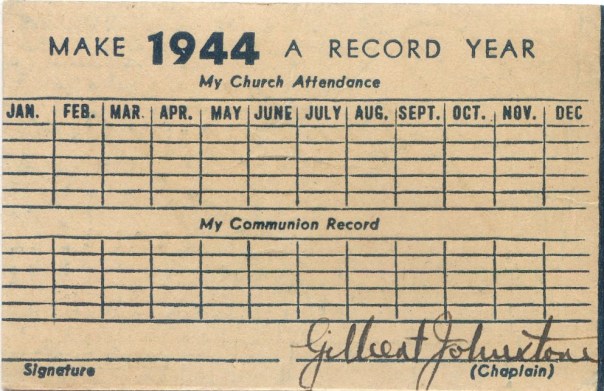 MAKE 1944 A RECORD YEAR
My Church Attendance
JAN. FEB. MAR. APR. MAY JUNE JULY AUG. SEPT. OCT. NOV. DEC
My Communion Record
Gilbert Johnstone
Signature (Chaplain)